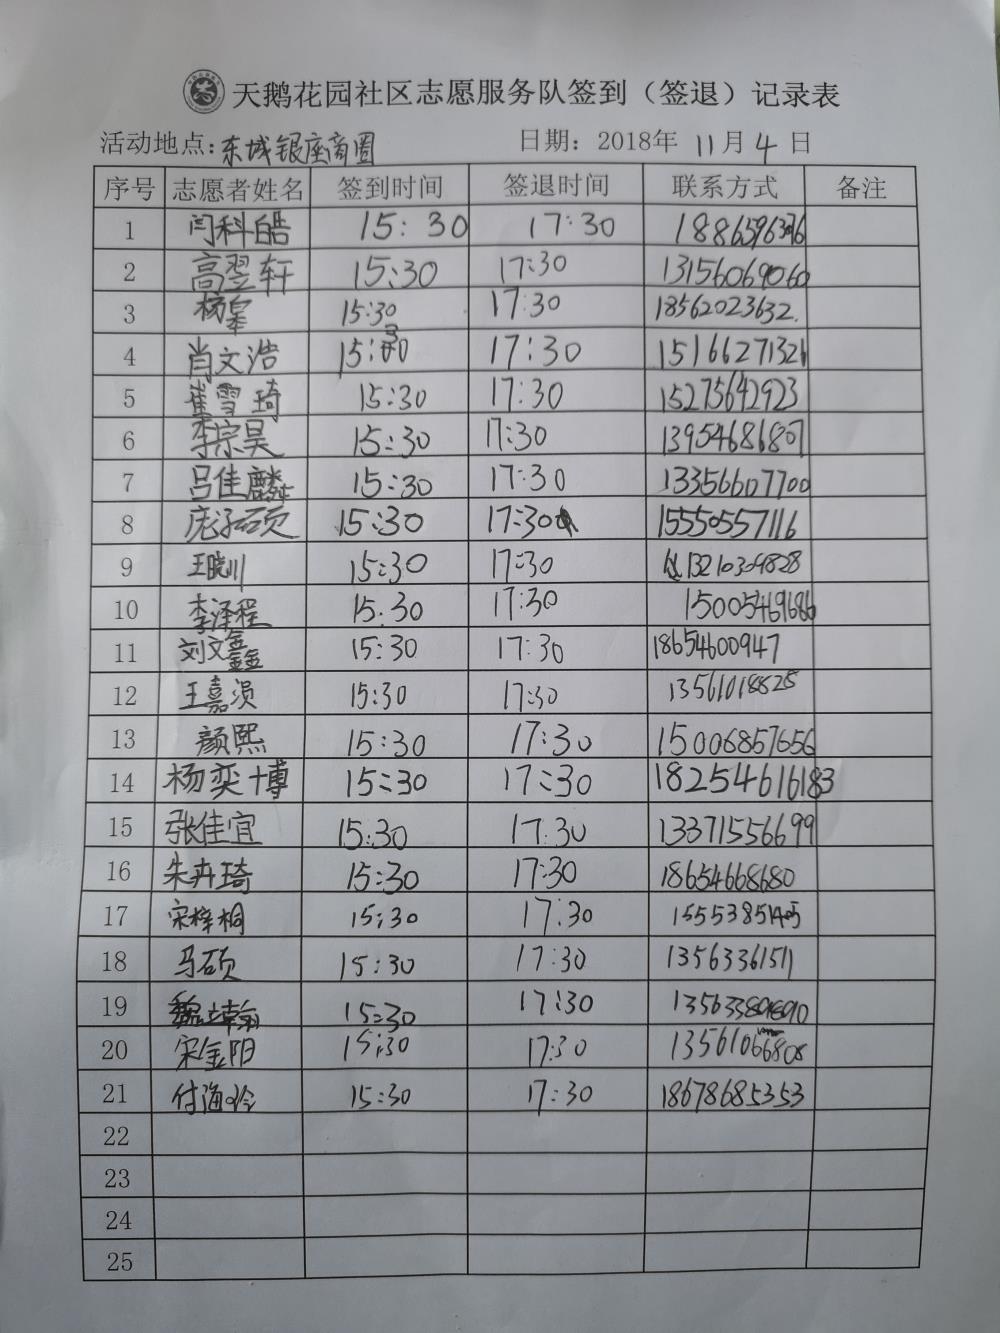 天鹅花园社区志愿服务队签到（签退）记录表
活动地点：东城银座商圈 日期：2018年 11月4日
序号 志愿者姓名 签到时间 签退时间 联系方式 备注
1 闫科皓 15:30 17:30
2 高翌轩 15:30 17:30 13156069060
3 杨皋 15:30 17:30 18562023632.
4 肖文浩 17:30 15166271326
5 崔雪琦 15:30 17:30 15275642923
6 李宗昊 15:30 17:30 13954686807
7 吕佳麟 15:30 17:30 13356607700
8 庞子硕 15:30 17:30 15550557116
9 王晓川 15:30 17:30 13210309828
10 李泽程 15:30 17:30 15005469686
11 刘文鑫 15:30 17:30 18654600947
12 王嘉涢 15:30 17:30 13561018828
13 颜熙 15:30 17:30 15006857656
14 杨奕博 15:30 17:30 18254616183
15 张佳宜 15:30 17:30 13371556699
16 朱卉琦 15:30 17:30 18654668680
17 宋梓桐 15:30 17:30
18 马硕 15:30 17:30 13563361511
19 15:30 17:30
20 宋金阳 15:30 17:30 13561066808
21 付海玲 15:30 17:30 18678685353
22
23
24
25